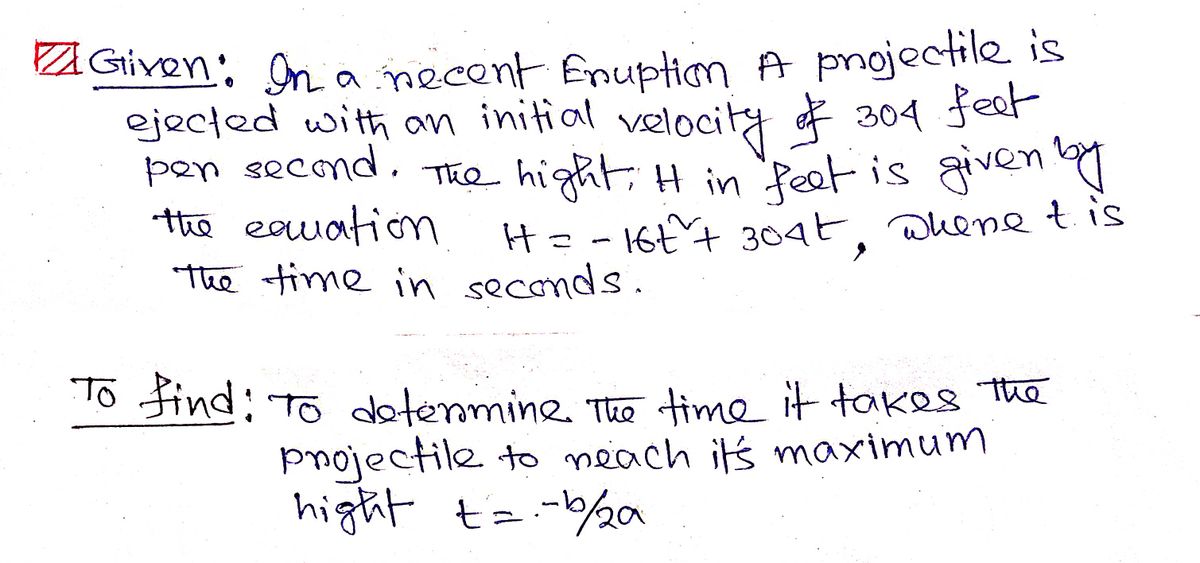 Given: In a recent Eruption A projectile is
ejected with an initial velocity of 304 feet
per second. The hight, H in feet is given by
the equation H = -16t²+ 304t, where t is
the time in seconds.
To find: To determine the time it takes the
projectile to reach it's maximum
hight t = -b/2a